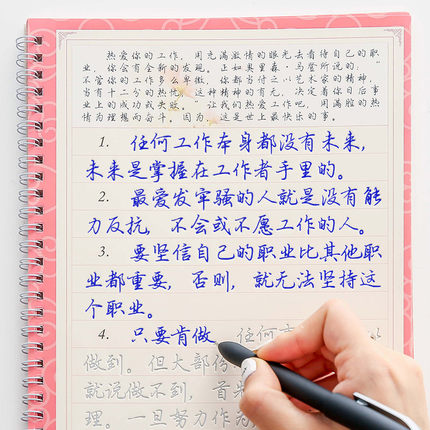 热爱你的工作，用充满激情的眼光去看待自己的职
业，你会有全新的发现。正如奥里森·马登所说的："
不管你的工作多么卑微，你都当付之以艺术家的精神，
当有十二分的热忱。这种精神的有无，决定着你日后事
业上的成功或失败。"让我们热爱工作吧，用满腔的热
情为理想而奋斗。因为，这是世上最快乐的事。
1. 任何工作本身都没有未来，
未来是掌握在工作者手里的。
2. 最爱发牢骚的人就是没有能
力反抗，不会或不愿工作的人。
3. 要坚信自己的职业比其他职
业都重要，否则，就无法坚持这
个职业。
4. 只要肯做 任何
做到。但大部份
就说做不到，首先
理。一旦努力作